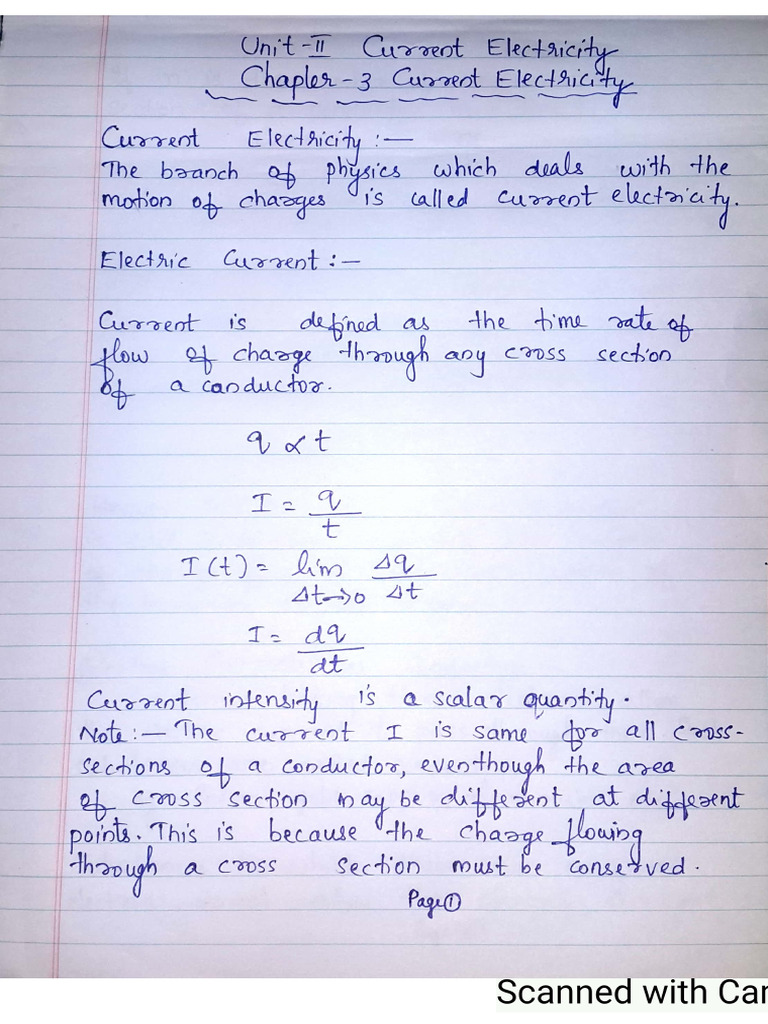 Unit-II Current Electricity
Chapler-3 Current Electricity
Current Electricity :—
The branch of physics which deals with the
motion of charges is called current electricity.
Electric Current :—
Current is defined as the time rate of
flow of charge through any cross section
of a conductor.
q ∝ t
I = q/t
I(t) = lim Δt→0 Δq/Δt
I = dq/dt
Current intensity is a scalar quantity.
Note :— The current I is same for all cross-
sections of a conductor, eventhough the area
of cross section may be different at different
points. This is because the charge flowing
through a cross section must be conserved.
Page ①
Scanned with Car